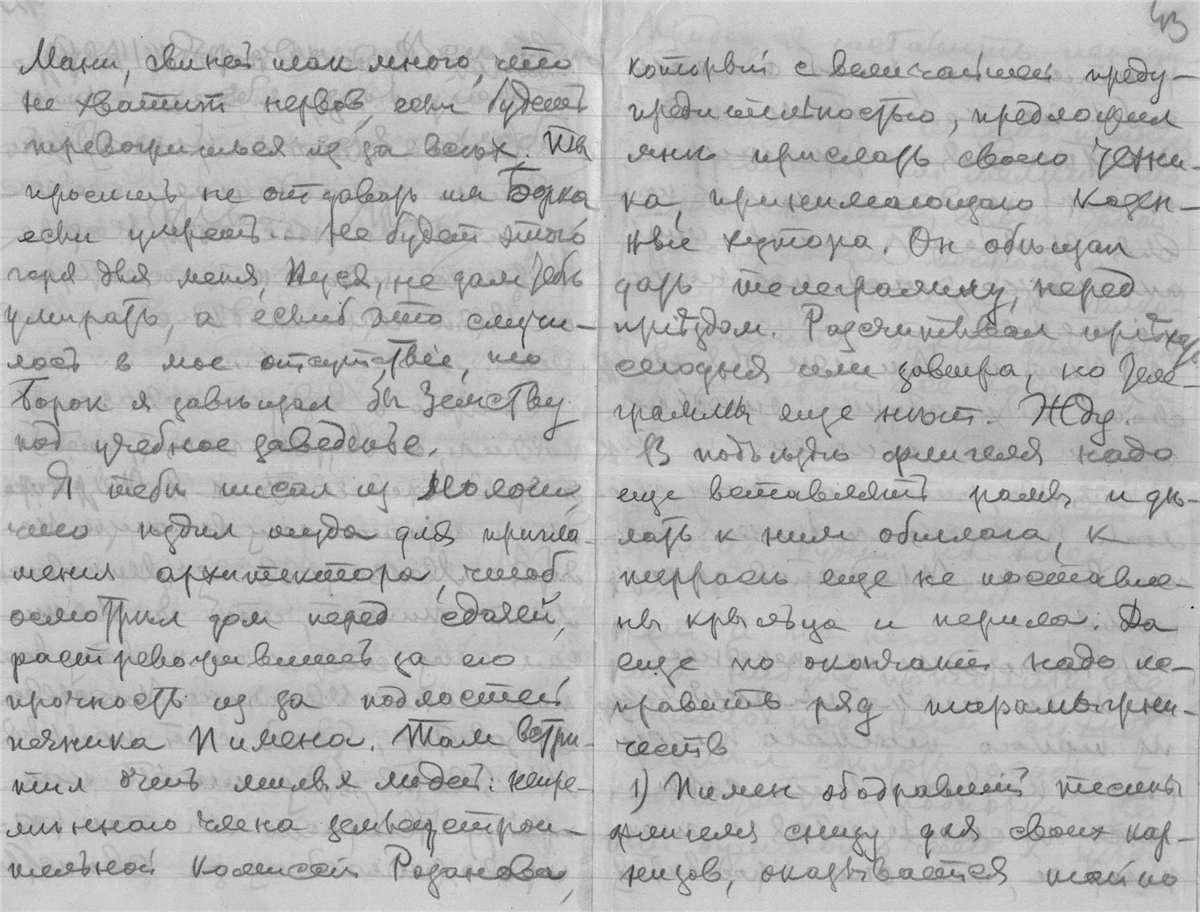 Мани, свиней так много, что
не хватит нервов, если будешь
тревожиться из за всех. Ты
просишь не отдавать им Борка
если умрешь... Не будет этого
горя для меня, Куся, не дам тебѣ
умирать, а еслиб это случи-
лось в мое отсутствiе, то
Борок я завѣщал бы Земству
под учебное заведенiе.
Я тебѣ писал из Мологи
что ѣздил туда для пригла-
шенiя архитектора, чтоб
осмотрѣл дом перед сдачей,
растревожившись за его
прочность из за подлостей
печника Пимена. Там встрѣ-
тил очень милых людей: непре-
мѣннаго члена землеустрои-
тельной Комиссiи Роданова,
43
который с величайшей преду-
предительностью, предложил
мнѣ прислать своего техни-
ка, принимающаго казен-
ные хутора. Он обѣщал
дать телеграмму, перед
прiѣздом. Разсчитывал прiѣхать
сегодня или завтра, но теле-
граммы еще нѣт. Жду.
В подъѣздѣ флигеля надо
еще вставлять рамы и дѣ-
лать к ним обшлага, к
террасѣ еще не поставле-
ны крыльца и перила. Да
еще по окончанiи надо ис-
править ряд шарамыжни-
честв
1) Пимен ободравшiй тесины
флигеля снизу для своих кар-
низов, оказывается тайно